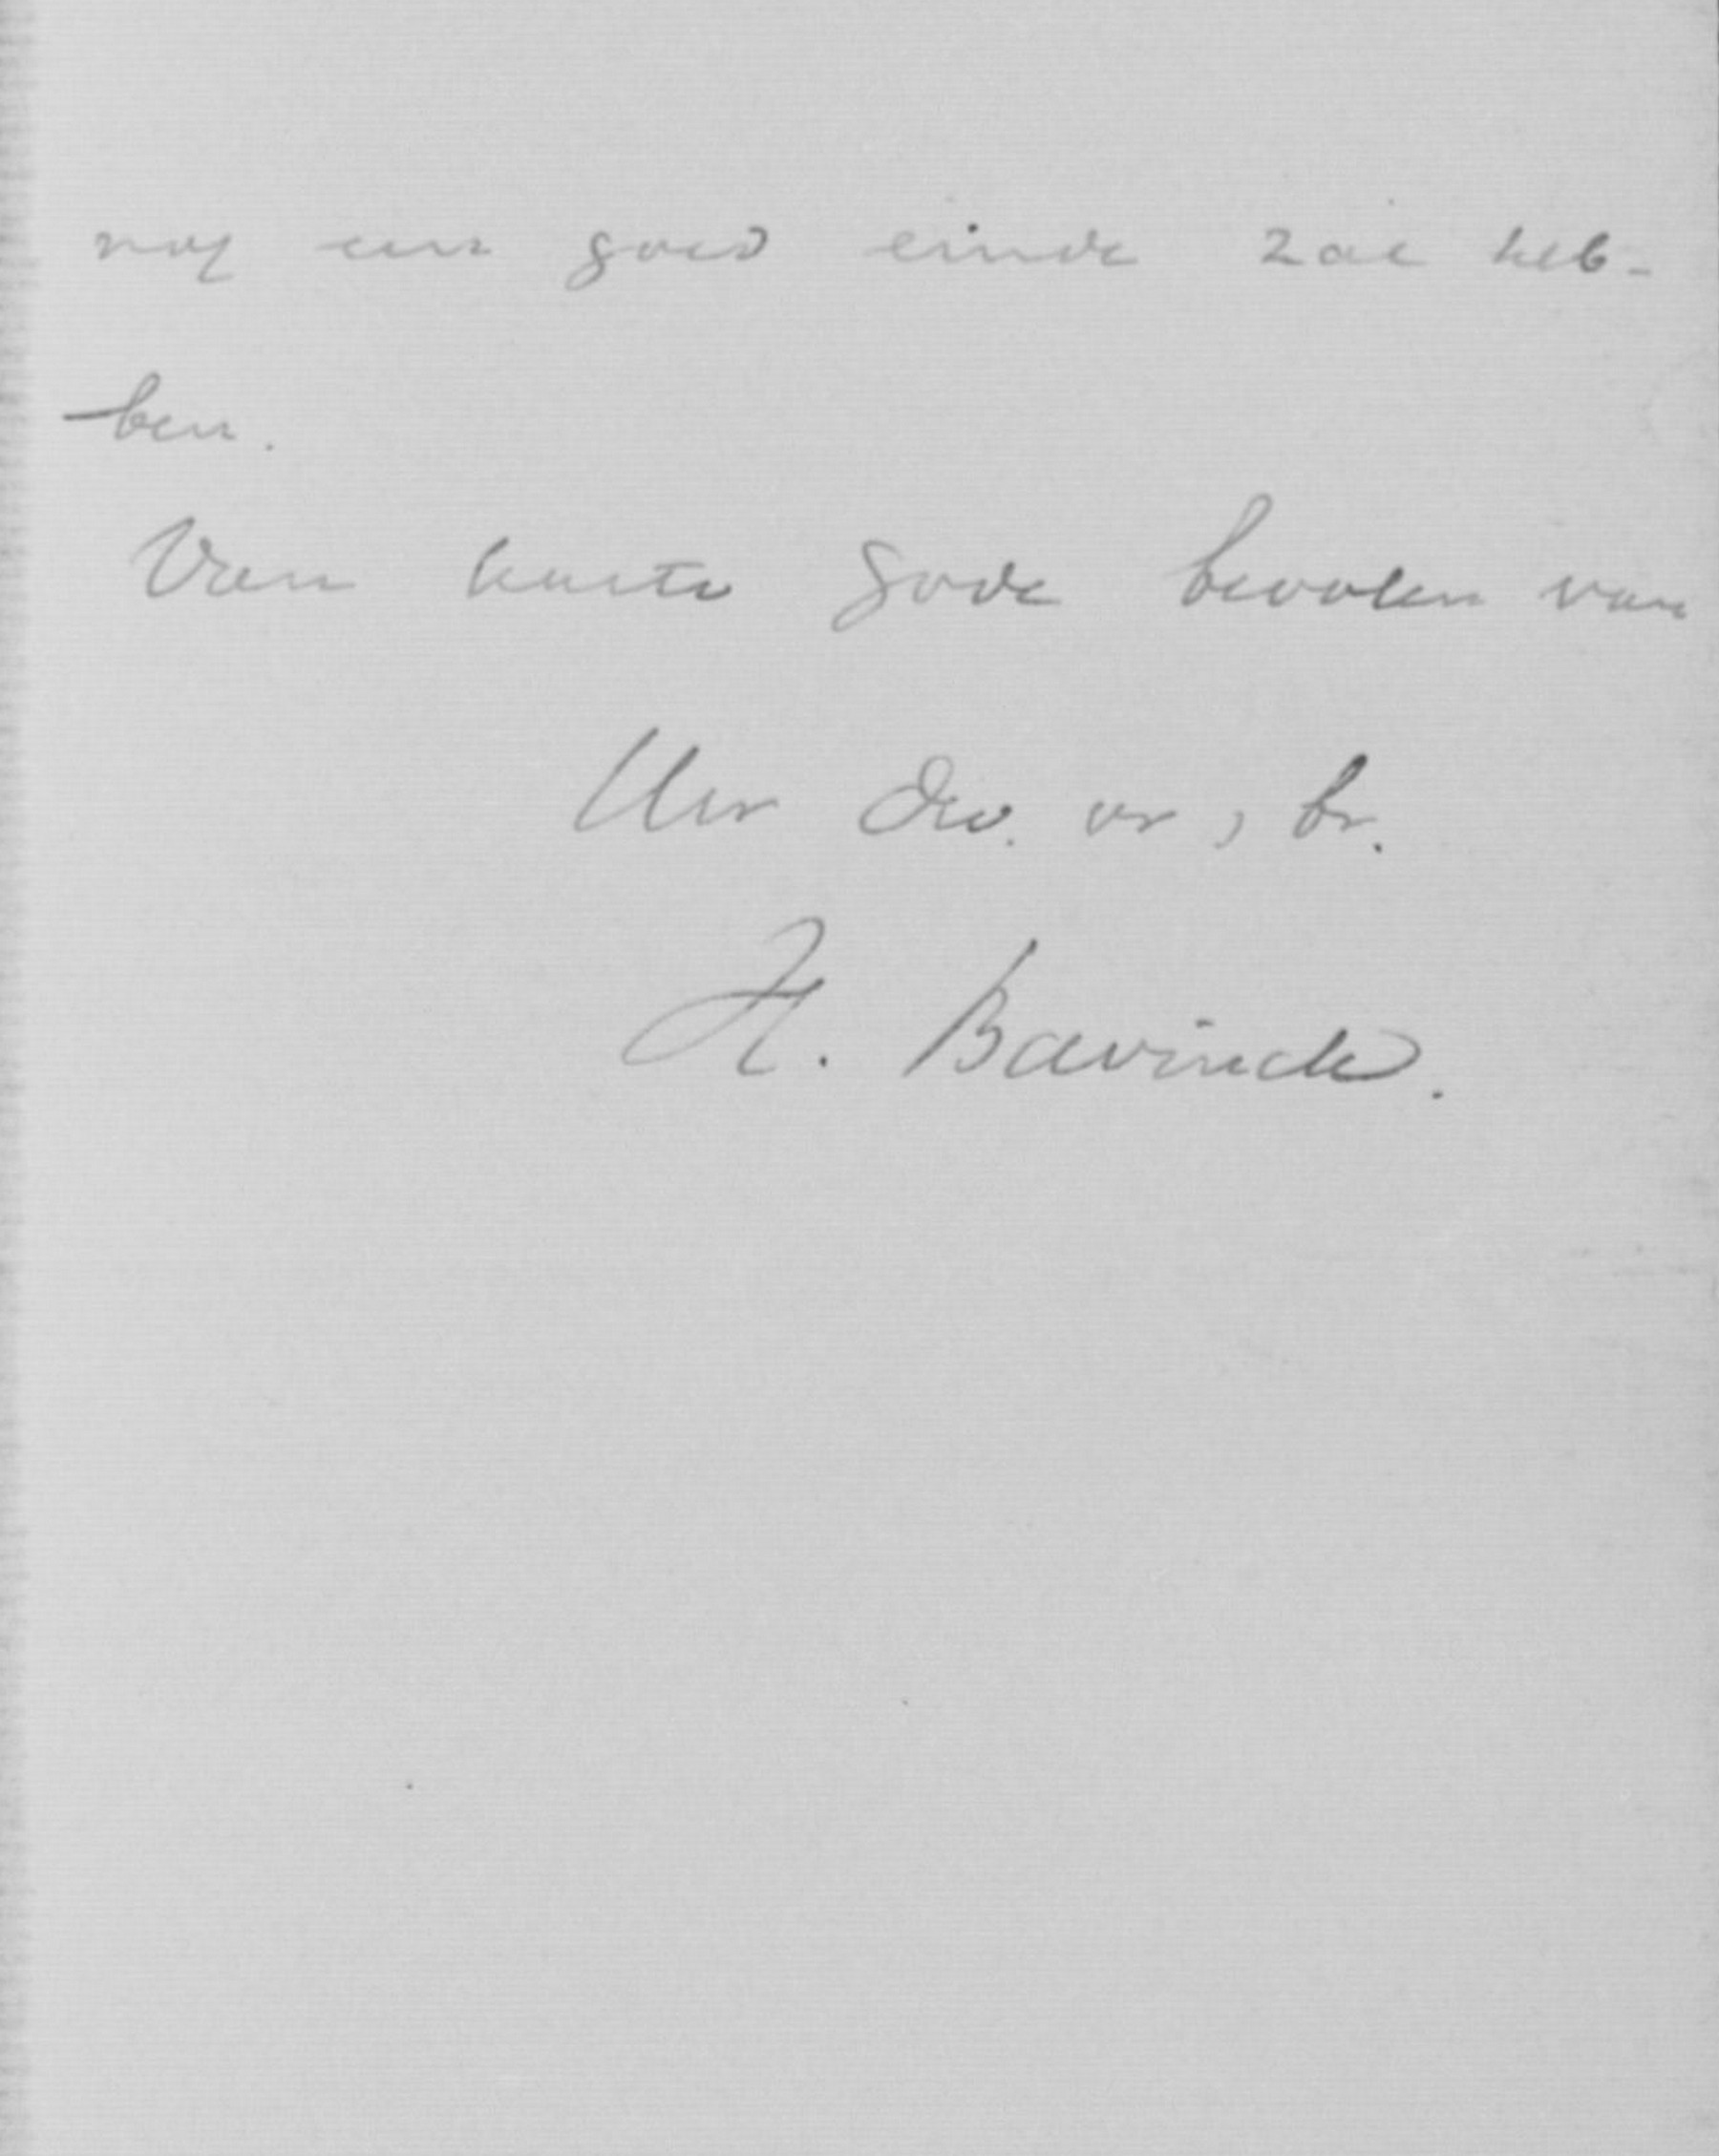 nog een goed einde zal heb-
ben.
Van harte Gode bevolen van
Uw dw. vr, br.
H. Bavinck.